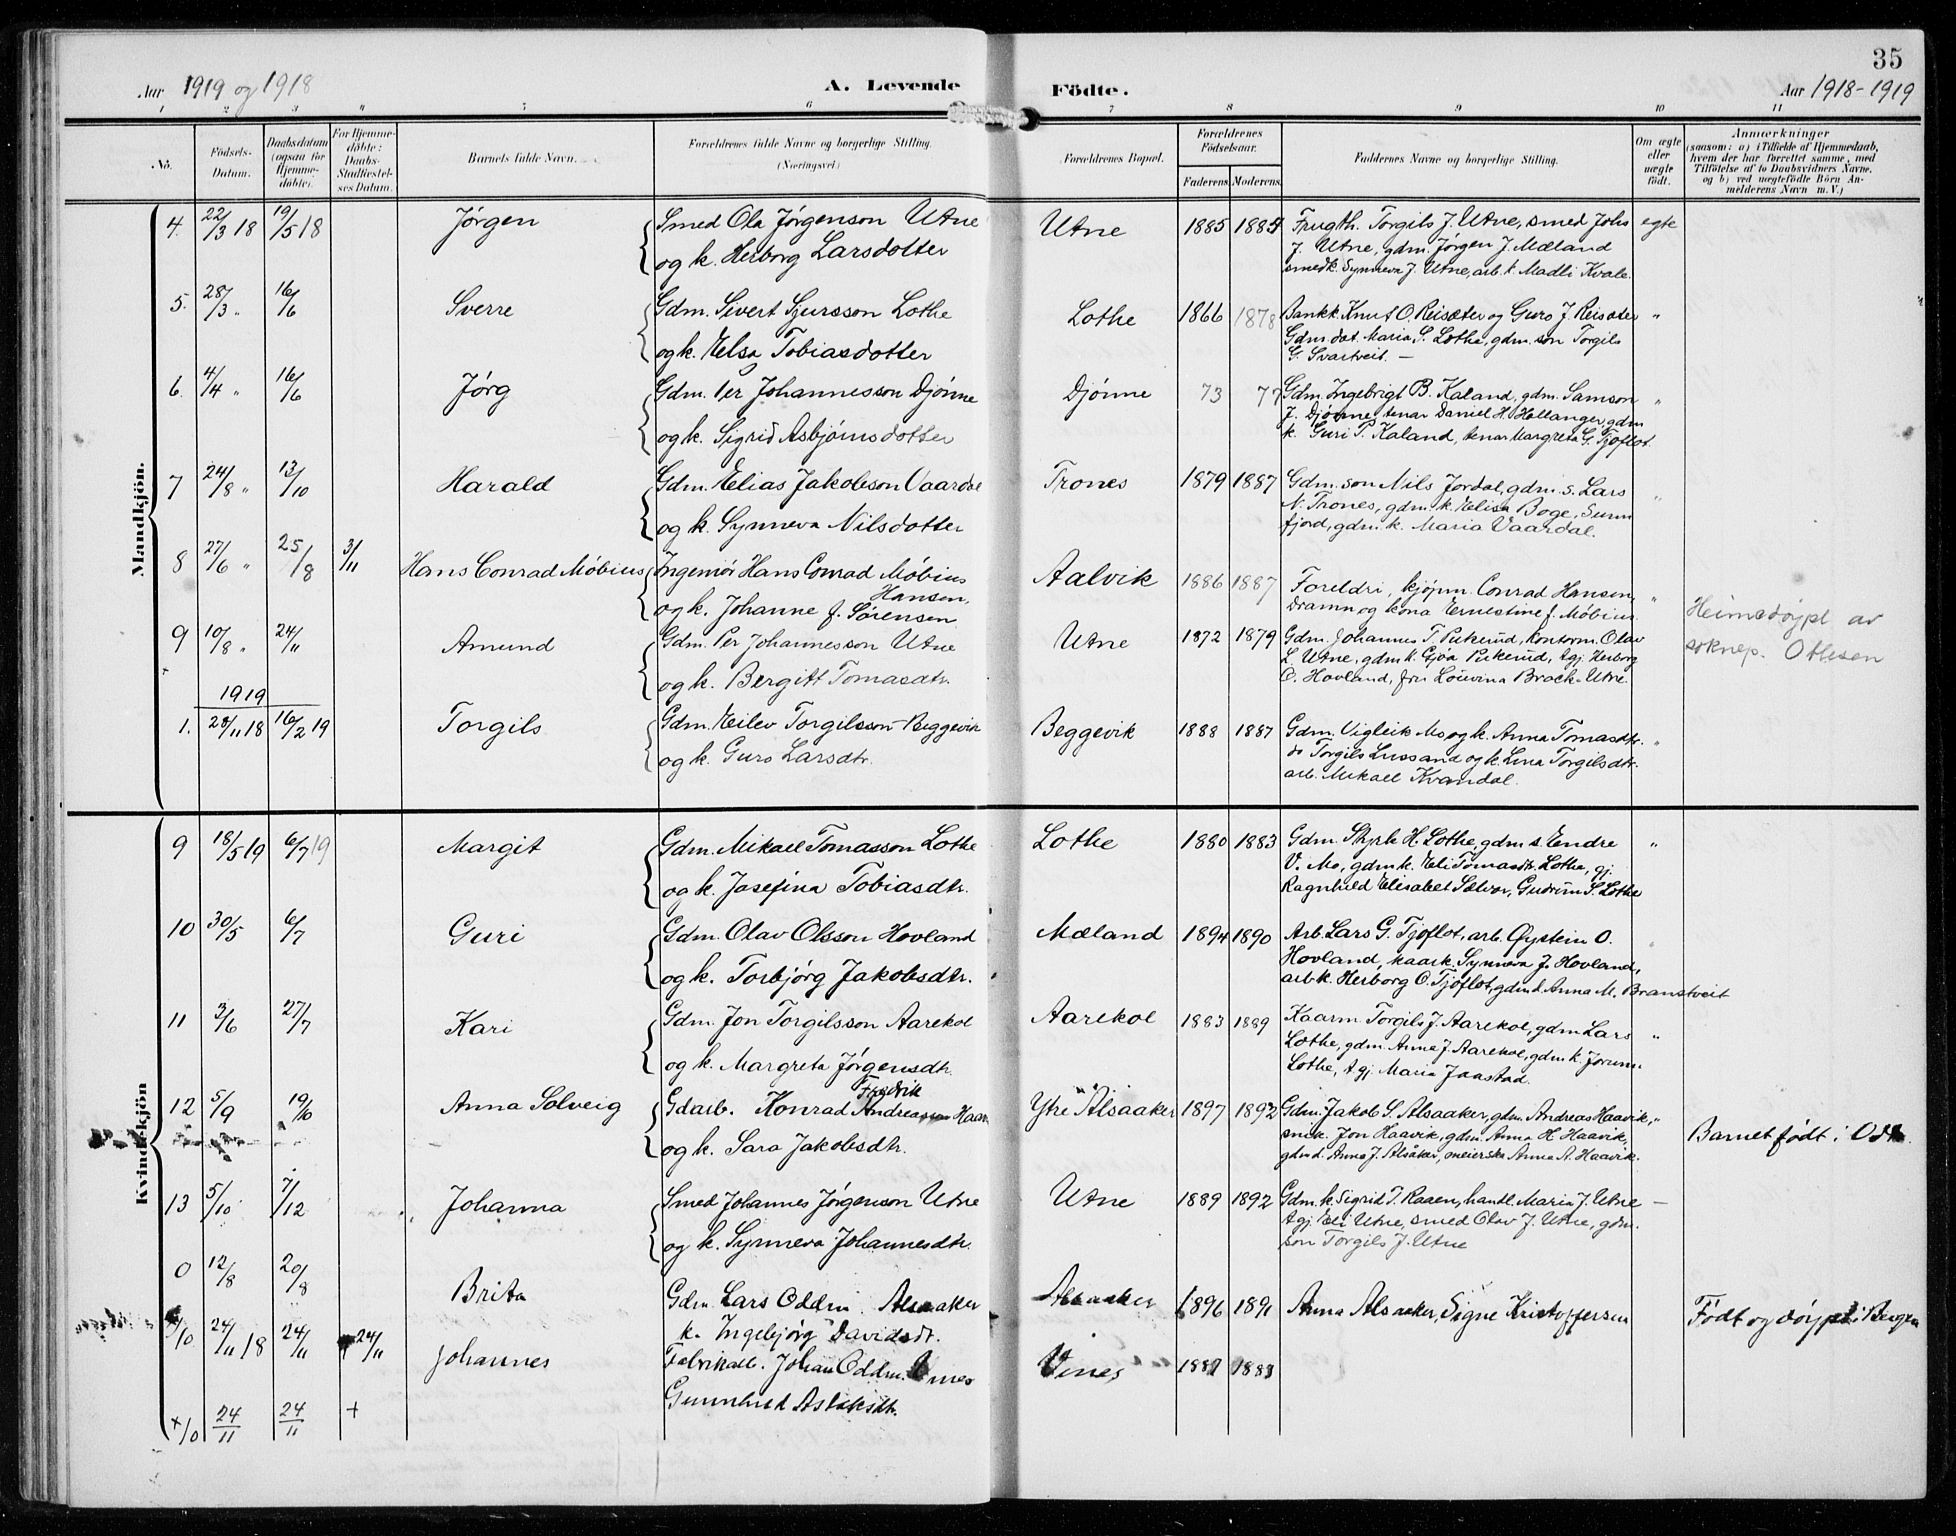 35
Aar 1919 og 1918 A. Levende Födte. Aar 1918-1919
1 2 3 " 5 6 7 8 9 10 11
No. Födsels-Datum. Daabsdatum (ogsaa for Hjemme-döbte). For Hjemme-döbte: Daabs-Stadfæstel-ses Datum. Barnets fulde Navn. Forældrenes fulde Navne og borgerlige Stilling. (Næringsvei) Forældrenes Bopæl. Forældrenes Födselsaar. Faderens. Moderens. Faddernes Navne og borgerlige Stilling. Om ægte eller uægte födt. Anmærkninger
(saasom: a) i Tilfælde af Hjemmedaab, hvem der har forrettet samme, med Tilföielse af to Daabsvidners Navne. og b) ved uægtefödte Börn An-melderens Navn m. V.)
Mandkjön.
4. 22/3 18 19/5 18 Jørgen Smed Ola Jørgenson Utne Utne 1885 1885 Frugth. Torgils J. Utne, smed Johs egte
og k. Herborg Larsdotter J. Utne, gdm. Jørgen J. Mæland
smedk. Synneva J. Utne, arb. k. Madli Kvale.
5. 28/3 " 16/6 Sverre Gdm. Sivert Sjursson Lothe Lothe 1866 1878 Bankk. Knut O. Reisæter og Guro J. Reisæter "
og k. Elsa Tobiasdotter Gdm. dot. Maria S. Lothe, gdm. son Torgils
G. Svartveit. —
6. 4/4 " 16/6 Jørg Gdm. Per Johannesson Djønne Djønne 73 77 Gdm. Ingebrigt B. Kaland, gdm. Samson "
og k. Sigrid Asbjørnsdotter J. Djønne, tenar Daniel H. Hollanger, gdm
k. Guri T. Kaland, tenar Margreta G. Tjoflot.
7 24/8 " 13/10 Harald Gdm. Elias Jakobson Vaardal Trones 1879 1887 Gdm. son Nils Jordal, gdm. s. Lars "
og k. Synneva Nilsdotter N. Trones, gdm. k. Elisa Boge, Sunn
fjord, gdm. k. Maria Vaardal.
8 27/6 " 25/8 3/11 Hans Conrad Møbius Ingeniør Hans Conrad Møbius Aalvik 1886 1887 Foreldri, kjøpm. Conrad Hansen, "
Hansen,
og k. Johanne f. Sørensen Dramn og kona Ernestine f. Møbius.
Heimedøypt av
soknep. Ottesen
9 10/8 " 24/11 Amund Gdm. Per Johannesson Utne Utne 1872 1879 Gdm. Johannes T. Pukerud, kontorm. Olav
og k. Bergitt Tomasdtr. L. Utne, gdm. k. Gjøa Pukerud, tgj. Herborg
O. Hovland, fru Louvina Brock-Utne.
1919
1. 28/11 18 16/2 19 Torgils Gdm. Eilev Torgilsson Beggevik Beggevik 1888 1887 Gdm. Vigleik Mo og k. Anna Tomasdtr. "
og k. Guro Larsdtr. do Torgils Lussand og k. Lina Torgilsdtr.
arb. Mikael Kvandal.
Kvindekjön
9 18/5 19 6/7 19 Margit Gdm. Mikael Tomasson Lothe Lothe 1880 1883 Gdm. Skjrle H. Lothe, gdm s. Endre "
og k. Josefina Tobiasdtr. V. Mo, gdm. k. Eli Tomasdtr. Lothe, gj.
Ragnhild Elisabet Sælvor, Gudrun S. Lothe
10 30/5 6/7 Guri Gdm. Olav Olsson Hovland Mæland 1894 1890 Arb. Lars G. Tjoflot, arb. Øystein O. "
og k. Torbjørg Jakobsdtr. Hovland, kaark. Synneva J. Hovland,
arb k. Herborg O. Tjoflot, gdm d. Anna M. Branstveit
11 3/6 27/7 Kari Gdm. Jon Torgilsson Aarekol Aarekol 1883 1889 Kaarm. Torgils J. Aarekol, gdm Lars "
og k. Margreta Jørgensdtr. Lothe, gdm. Anna J. Aarekol, gdm. k. Jorunn
Lothe, tgj Maria Jaastad.
12 5/9 19/10 Anna Solveig Gdarb. Konrad Fredrik Andreassen Haavik Ytre Alsaaker 1897 1892 Gdm. Jakob S. Alsaaker, gdm. Andreas Haavik, "
og k. Sara Jakobsdtr. snik. Jon Haavik, gdm. Anna H Haavik,
gdm d. Anna J. Alsåker, meierska Anna A. Haavik.
Barnet født i Odda.
13 5/10 7/12 Johanna Smed Johannes Jørgenson Utne Utne 1889 1892 Gdm. k. Sigrid T. Raaen, handl. Maria J. Utne —
og k. Synneva Johannesdtr. tgj Eli Utne, smed Olav J. Utne, gdm.
son Torgils J. Utne
0 12/8 20/8 Brita Gdm. Lars Oddm. Alsaaker Alsaaker 1896 1891 Anna Alsaaker, Signe Kristoffersen Født og døypt i Bergen
k. Ingebjørg Davidsdt.
/0 24/11 18 24/11 24/11 Johannes Fabrikarb. Johan Oddm. Vines Vines 1883
Gunnhild Aslaksdtr.
+/0 24/11 24/11 +